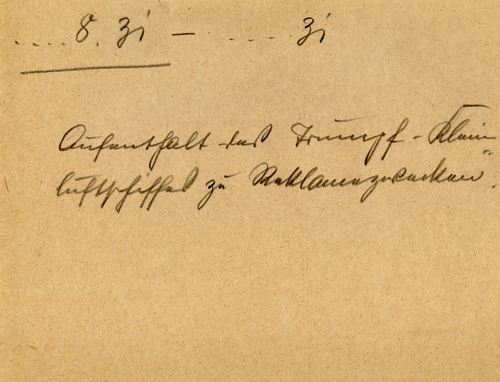 ..... 8. 31 — ..... 31
Aufenthalt des Trumpf-Klein
luftschiffes zu Reklamezwecken".